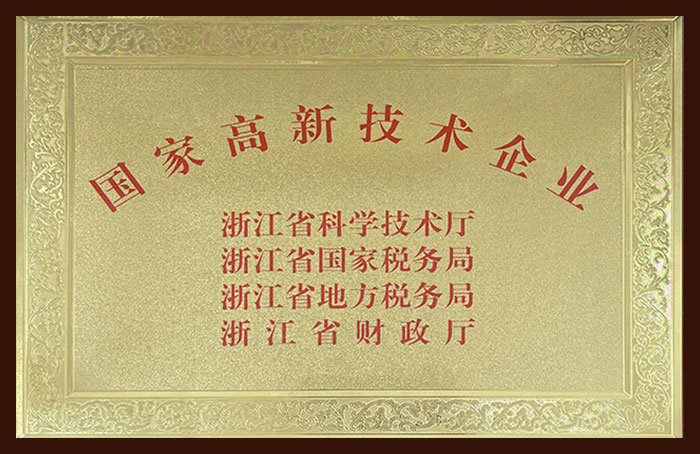 国家高新技术企业
浙江省科学技术厅
浙江省国家税务局
浙江省地方税务局
浙江省财政厅